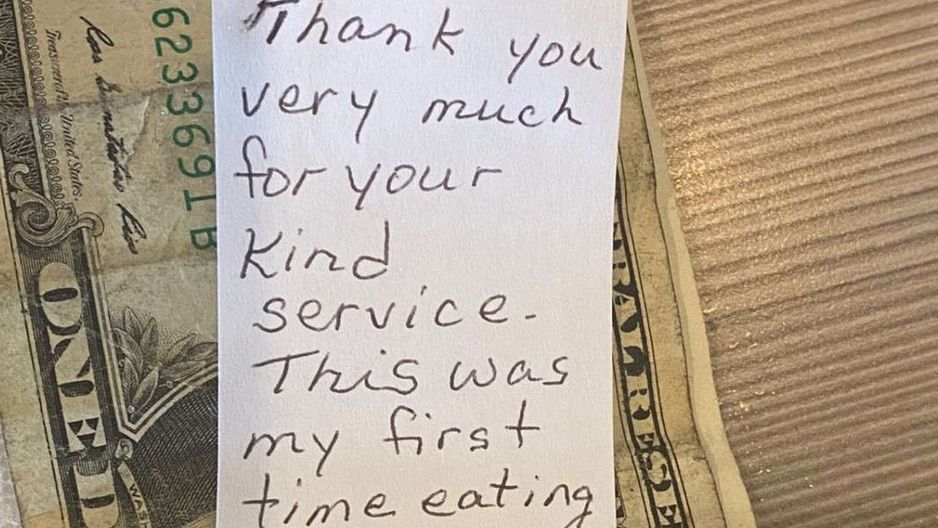 Thank you
very much
for your
kind
service.
This was
my first
time eating
6233691 B
Treasurer of the United States.
ONE D
WASH